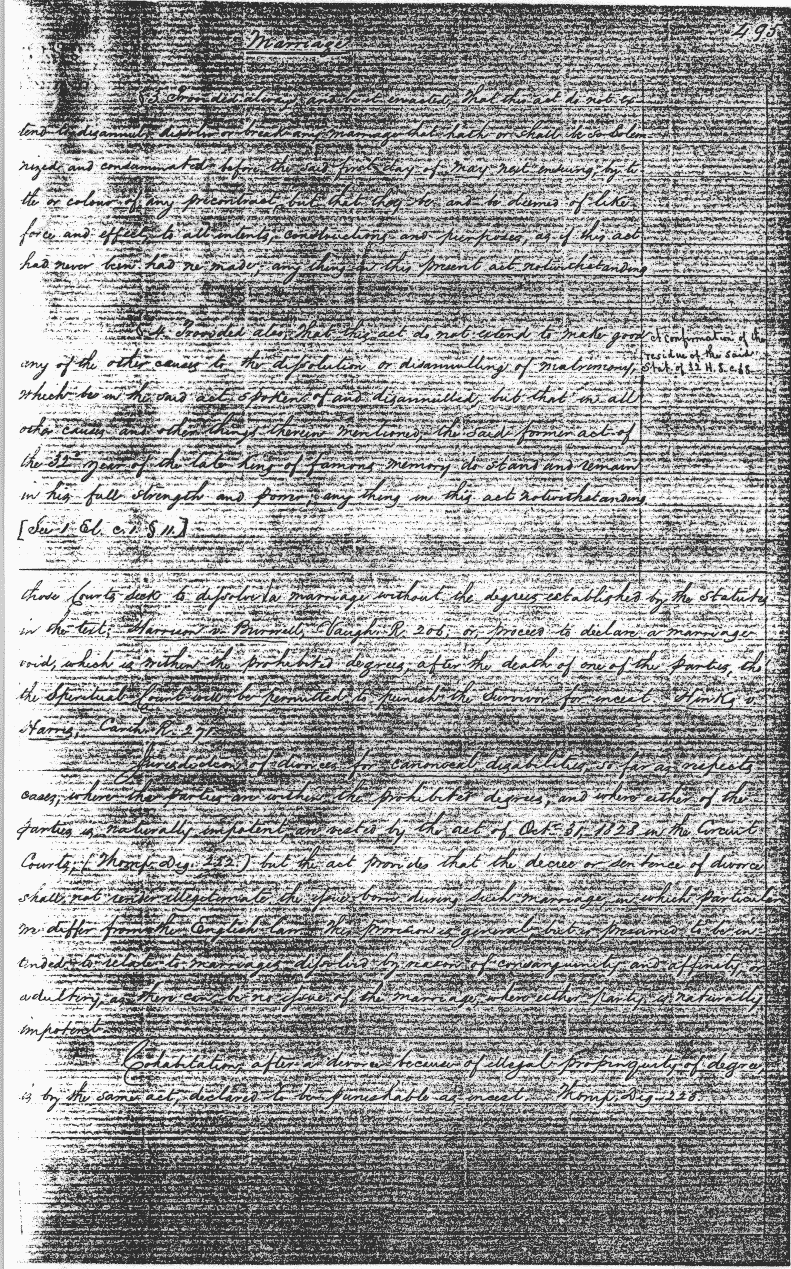 495
Marriage
§3. Provided always, and be it enacted, That this act do not ex-
tend to disannull, dissolve or break any marriage that hath or shall be solem-
nized and consummated before the said first day of May next ensuing, by ti-
tle or colour of any precontract, but that they be and be deemed of like
force and effect, to all intents, constructions and purposes, as if this act
had never been had ne made, any thing in this present act notwithstanding
§4. Provided also, That this act do not extend to make good
any of the other causes to the dissolution or disannulling of matrimony,
which be in the said act spoken of and disannulled, but that in all
other causes and other things therein mentioned, the said former act of
the 32d year of the late king of famous memory do stand and remain
in his full strength and power, any thing in this act notwithstanding
[See 1. El. c. 1. § 11.]
A confirmation of the
residue of the said
Stat. of 32 H. 8. c. 38.
those Courts seek to dissolve a marriage without the degrees established by the statutes
in the text; Harrison v. Burwell, Vaugh. R. 206; or, proceed to declare a marriage
void, which is within the prohibited degrees, after the death of one of the parties, tho'
the Spiritual Court will be permitted to punish the survivor for incest. Hinks v.
Harris, Carth. R. 271.
Jurisdiction of divorces for canonical disabilities, so far as respects
cases, where the parties are within the prohibited degrees, and where either of the
parties is naturally impotent, are vested by the act of Oct. 31, 1828 in the Circuit
Courts, (Thomp. Dig. 222.) but the act provides that the decree or sentence of divorce
shall not render illegitimate the issue born during such marriage, in which particular
we differ from the English law. The proviso is general but is presumed to be in-
tended to relate to marriages dissolved by reason of consanguinity and affinity, or
adultery, as there can be no issue of the marriage, where either party is naturally
impotent.
Cohabitation, after a divorce because of illegal propinquity of degree,
is by the same act, declared to be punishable as incest. Thomp. Dig. 223.